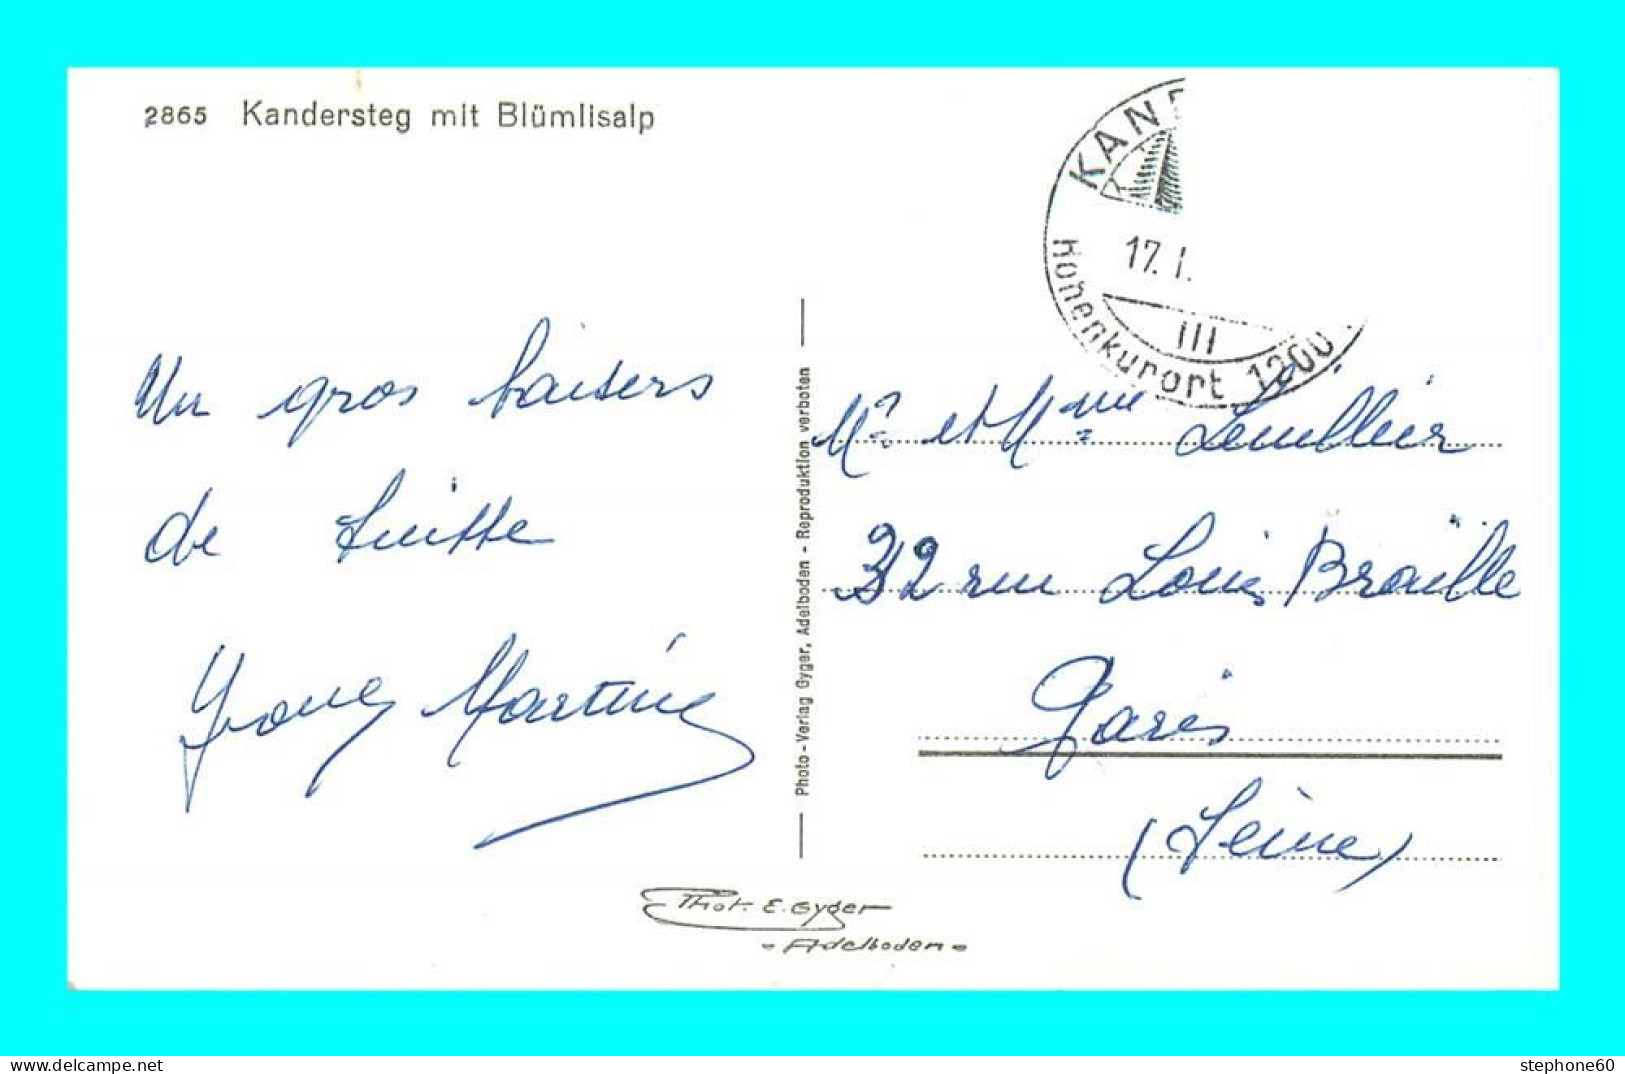 2865 Kandersteg mit Blümlisalp
KANDE
17. I.
III
Höhenkurort 1200
Un gros baisers
de Suisse
Martine
Photo-Verlag Gyger, Adelboden - Reproduktion verboten
Mr et Mme Lemillier
32 rue Louis Braille
Paris
(Seine)
Phot. E. Gyger
Adelboden
Lamour du passé
stephone60